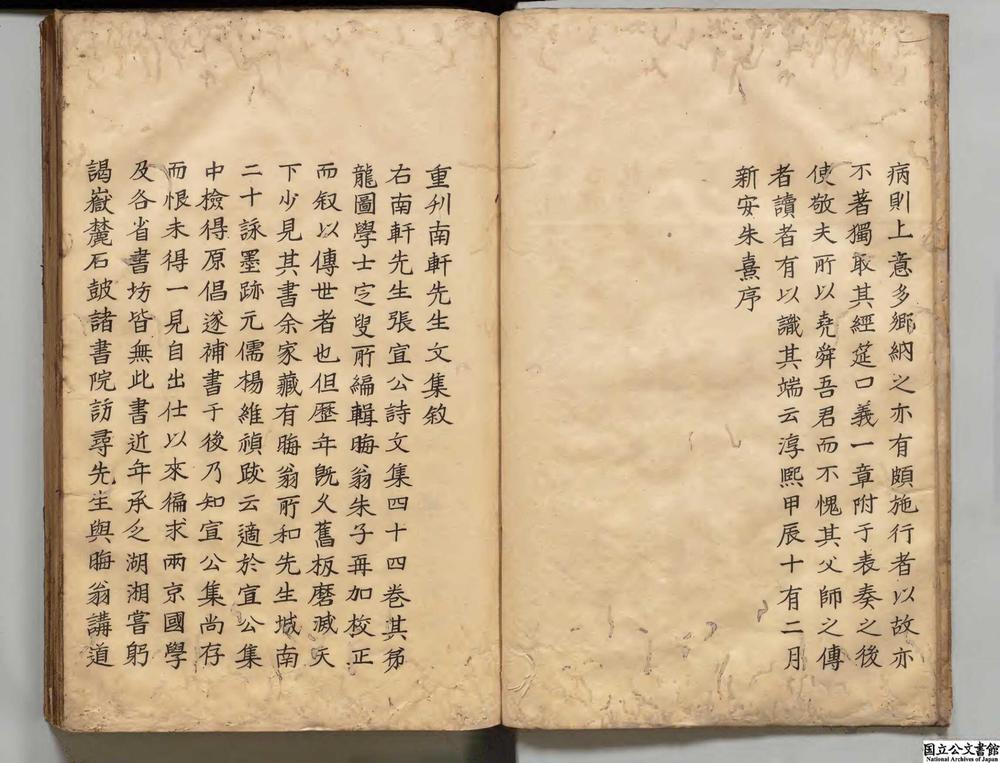 病則上意多鄉納之亦有頗施行者以故亦
不著獨取其經筵口義一章附于表奏之後
使敬夫所以堯舜吾君而不愧其父師之傳
者讀者有以識其端云淳熙甲辰十有二月
新安朱熹序
重刋南軒先生文集敘
右南軒先生張宜公詩文集四十四卷其弟
龍圖學士㝎叟所編輯晦翁朱子再加校正
而叙以傳世者也但歷年旣乆舊板磨滅天
下少見其書余家藏有晦翁所和先生城南
二十詠墨跡元儒楊維禎跋云適於宜公集
中檢得原倡遂補書于後乃知宜公集尚存
而恨未得一見自出仕以來徧求兩京國學
及各省書坊皆無此書近年承乏湖湘嘗躬
謁嶽麓石鼓諸書院訪尋先生與晦翁講道
国立公文書館
National Archives of Japan